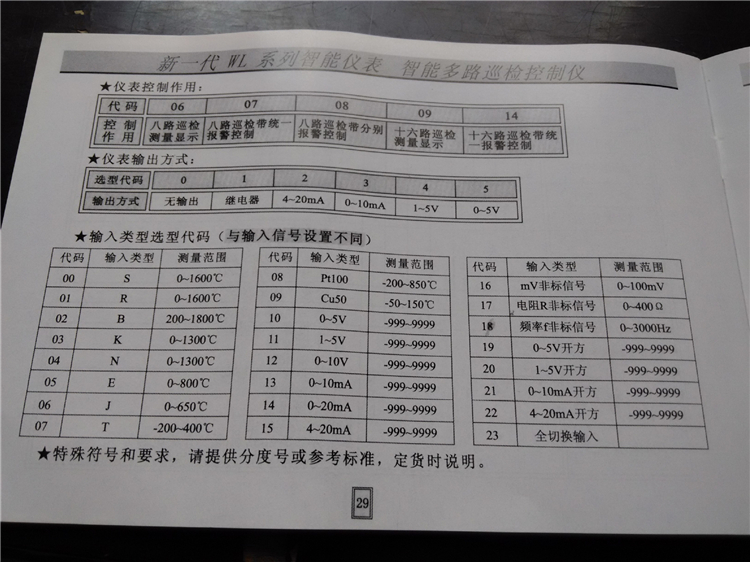 新一代 WL 系列智能仪表 智能多路巡检控制仪
★仪表控制作用：
代码 06 07 08 09 14
控制作用 八路巡检测量显示 八路巡检带统一报警控制 八路巡检带分别报警控制 十六路巡检测量显示 十六路巡检带统一报警控制
★仪表输出方式：
选型代码 0 1 2 3 4 5
输出方式 无输出 继电器 4~20mA 0~10mA 1~5V 0~5V
★输入类型选型代码（与输入信号设置不同）
代码 输入类型 测量范围
00 S 0~1600℃
01 R 0~1600℃
02 B 200~1800℃
03 K 0~1300℃
04 N 0~1300℃
05 E 0~800℃
06 J 0~650℃
07 T -200~400℃
代码 输入类型 测量范围
08 Pt100 -200~850℃
09 Cu50 -50~150℃
10 0~5V -999~9999
11 1~5V -999~9999
12 0~10V -999~9999
13 0~10mA -999~9999
14 0~20mA -999~9999
15 4~20mA -999~9999
代码 输入类型 测量范围
16 mV非标信号 0~100mV
17 电阻R非标信号 0~400Ω
18 频率f非标信号 0~3000Hz
19 0~5V开方 -999~9999
20 1~5V开方 -999~9999
21 0~10mA开方 -999~9999
22 4~20mA开方 -999~9999
23 全切换输入
★特殊符号和要求，请提供分度号或参考标准，定货时说明。
29